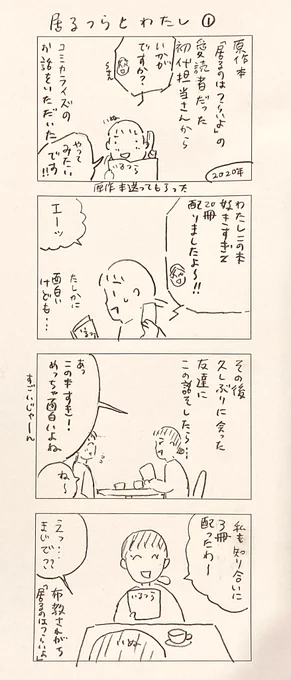 居るつらとわたし ①
原作本
「居るのはつらいよ」の
愛読者だった
初代担当さんから
いかが
ですか?
コミカライズの
お話をいただいた
やって
みたい
です!!
2020年
原作本送ってもろた
わたしこの本
好きすぎて
20冊
配りましたよ〜!!
エーッ
たしかに
面白い
けども…
その後
久しぶりに会った
友達に
この話をしたら…
あっ
この本すき!
めっちゃ面白いよね
ね〜
すごいじゃーん
私も知り合いに
3冊
配ったわ〜
いるつら
えっ…
まじで??
布教されがち
「居るのはつらいよ」